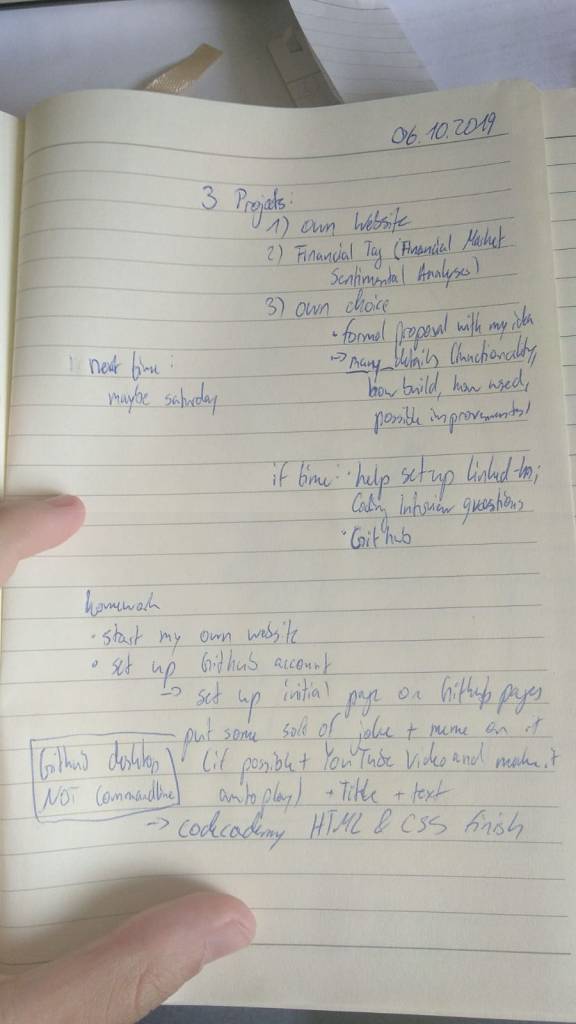 06.10.2019
3 Projects:
1) own Website
2) Financial Tag (Financial Market
Sentimental Analyses)
3) own choice
• formal proposal with my idea
→ many details (functionality,
next time:
how build, how used,
maybe saturday
possible improvements)
if time: • help set up Linked-In;
Coding Interview questions
• GitHub
homework
• start my own website
• set up Github account
→ set up initial page on Github pages
put some sort of joke + meme on it
Github desktop
(if possible + YouTube Video and make it
NOT Commandline
autoplay) + Title + text
→ codecademy HTML & CSS finish